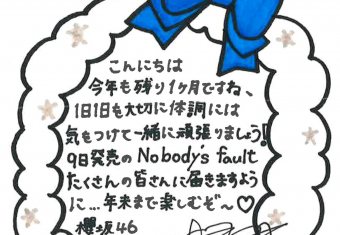 こんにちは
今年も残り1ヶ月ですね、
1日1日も大切に体調には
気をつけて一緒に頑張りましょう!
9日発売のNobody's fault
たくさんの皆さんに届きますよう
に…年末まで楽しむぞ〜♡
櫻坂46